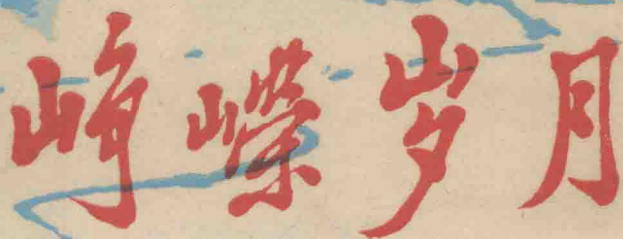 峥嵘岁月